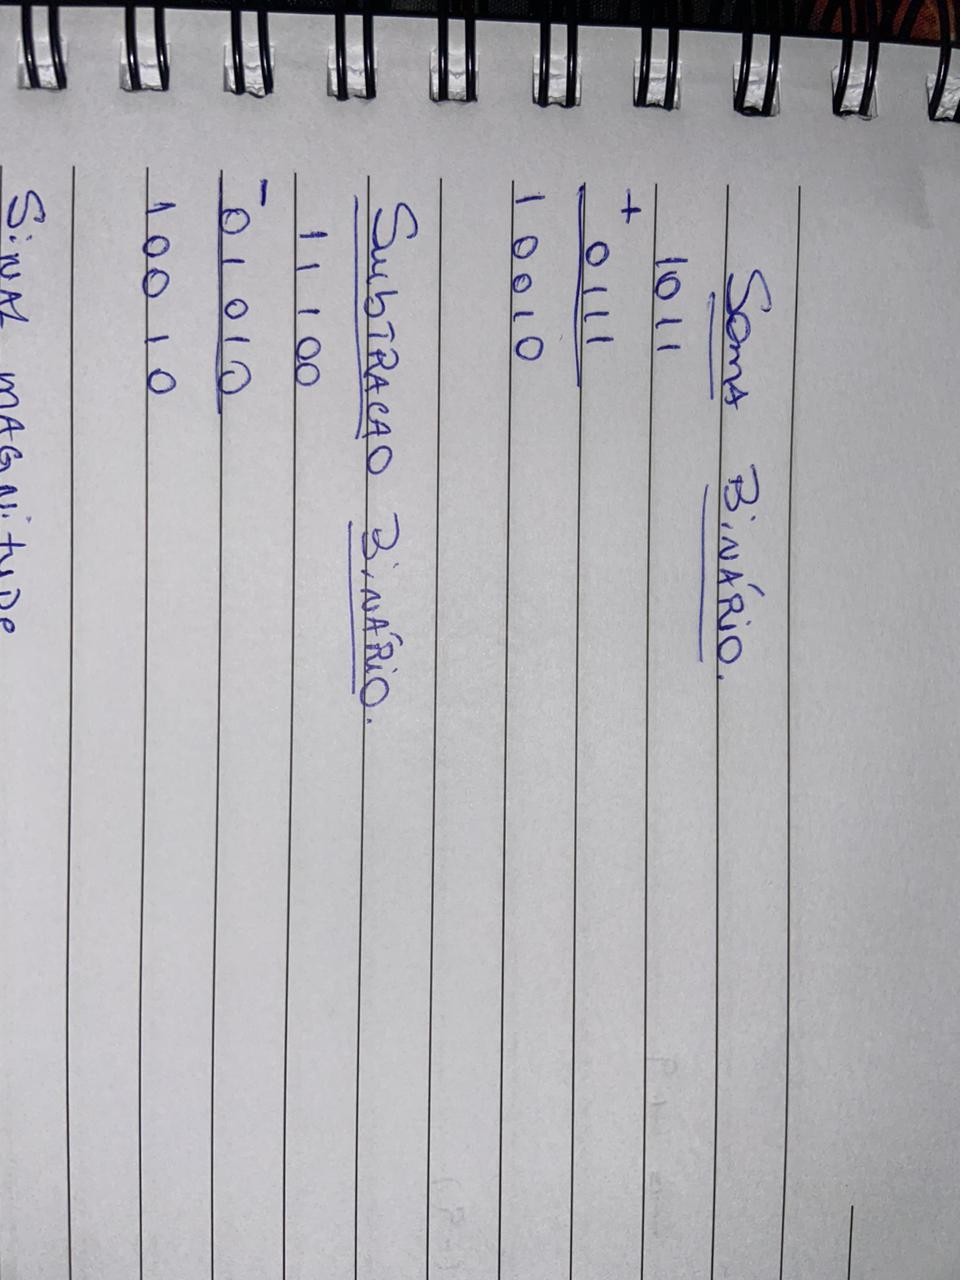 Soma Binário.
1011
+
0111
10010
Subtracao Binário.
11100
-
01010
10010
Sinal magnitude